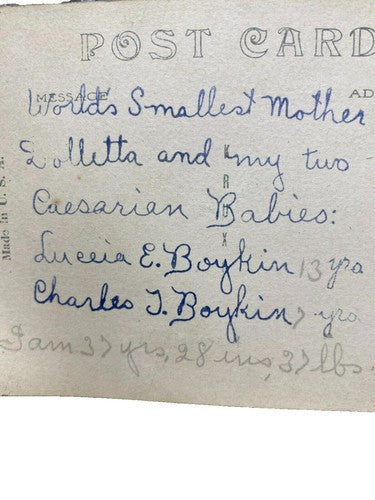 POST CARD
MESSAGE
AD
Worlds Smallest Mother
Dolletta and my two
Caesarien Babies:
Luceia E. Boykin 13 yrs
Charles T. Boykin 7 yrs
I am 37 yrs, 28 ins, 37 lbs.
KRUX
Made in U. S. A.